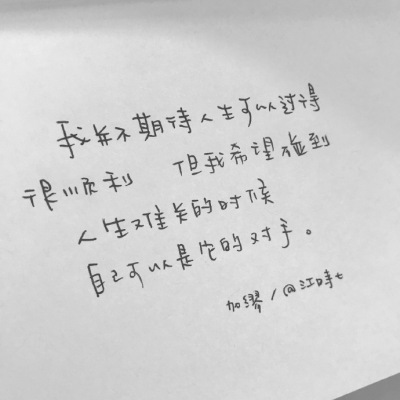 我并不期待人生可以过得
很顺利 但我希望碰到
人生难关的时候
自己可以是它的对手。
加缪/@江时七